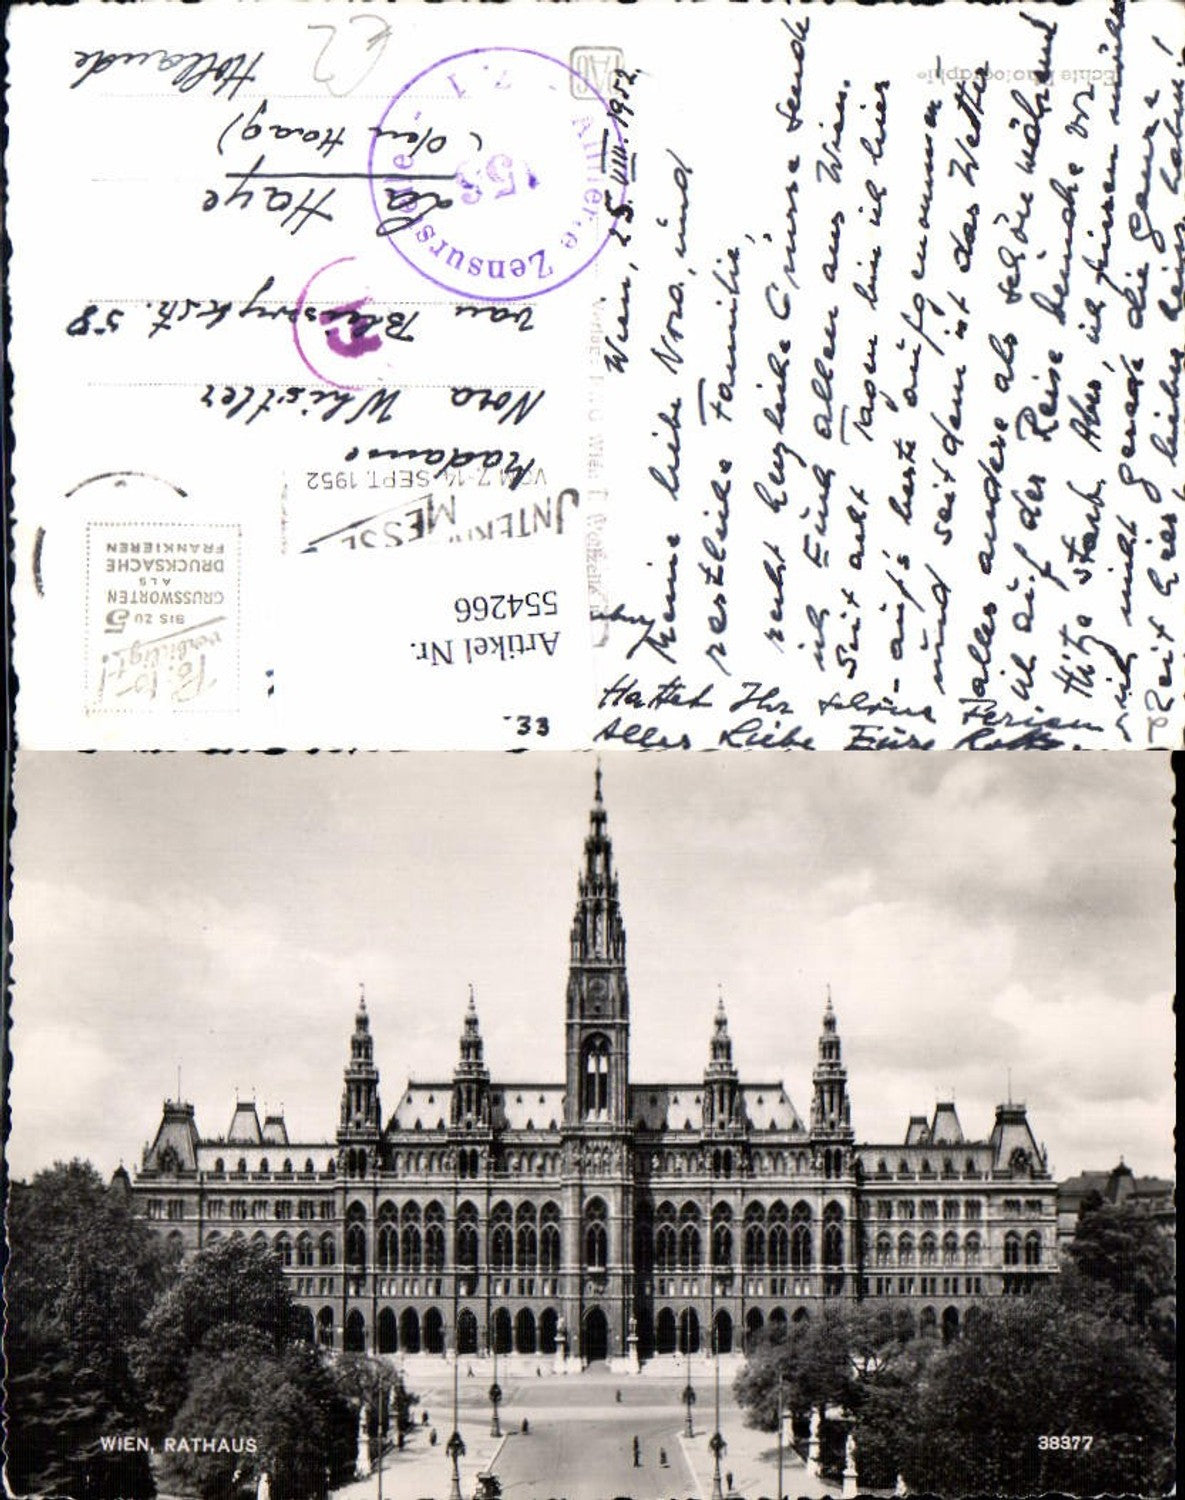 Wien, 25. VIII. 1952.
Meine liebe Nora, und
restliche Familie,
recht herzliche Grüsse sende
ich Euch allen aus Wien.
Seit acht Tagen bin ich hier
aufs beste aufgenommen
und seitdem ist das Wetter
alles andere als schön während
ich auf der Reise beinahe vor
Hitze starb. Aber, ich
mich nicht gerade die ganze
Zeit hier
Hattet Ihr schöne Ferien
Alles Liebe Eure
Echte Photographie
PAG
Artikel Nr.
554266
INTERN. MESSE
VOM 7.-14. SEPT. 1952
BIS ZU 5
GRUSSWORTEN
ALS
DRUCKSACHE
FRANKIEREN
Madame
Nora Whistler
van Bleiswykstr. 58
La Haye
(den Haag)
Hollande
Alliierte Zensurstelle
153
€2
33
WIEN, RATHAUS
38377